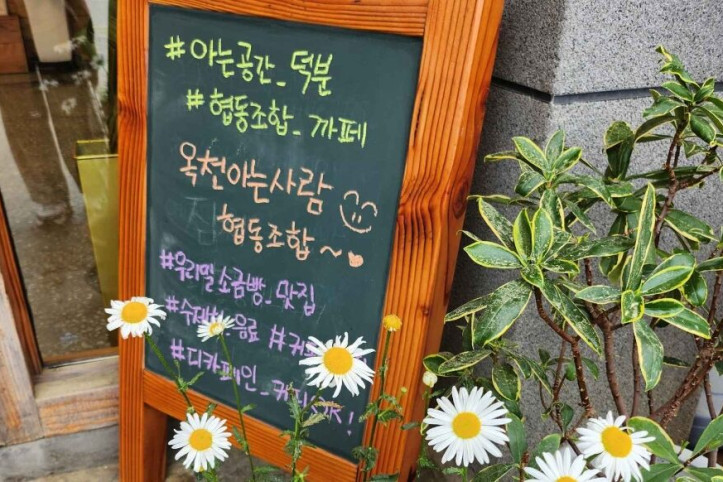 #아는공간_덕분
#협동조합_까페
옥천아는사람
협동조합~
#우리밀소금빵_맛집
#수제청_음료 #커피
#디카페인_커피OK!